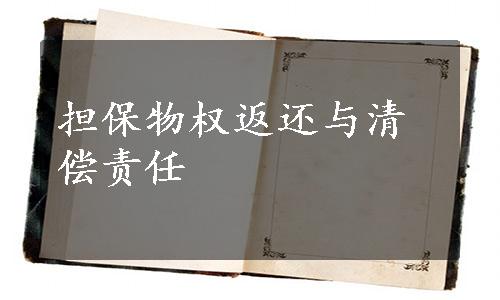 担保物权返还与清
偿责任